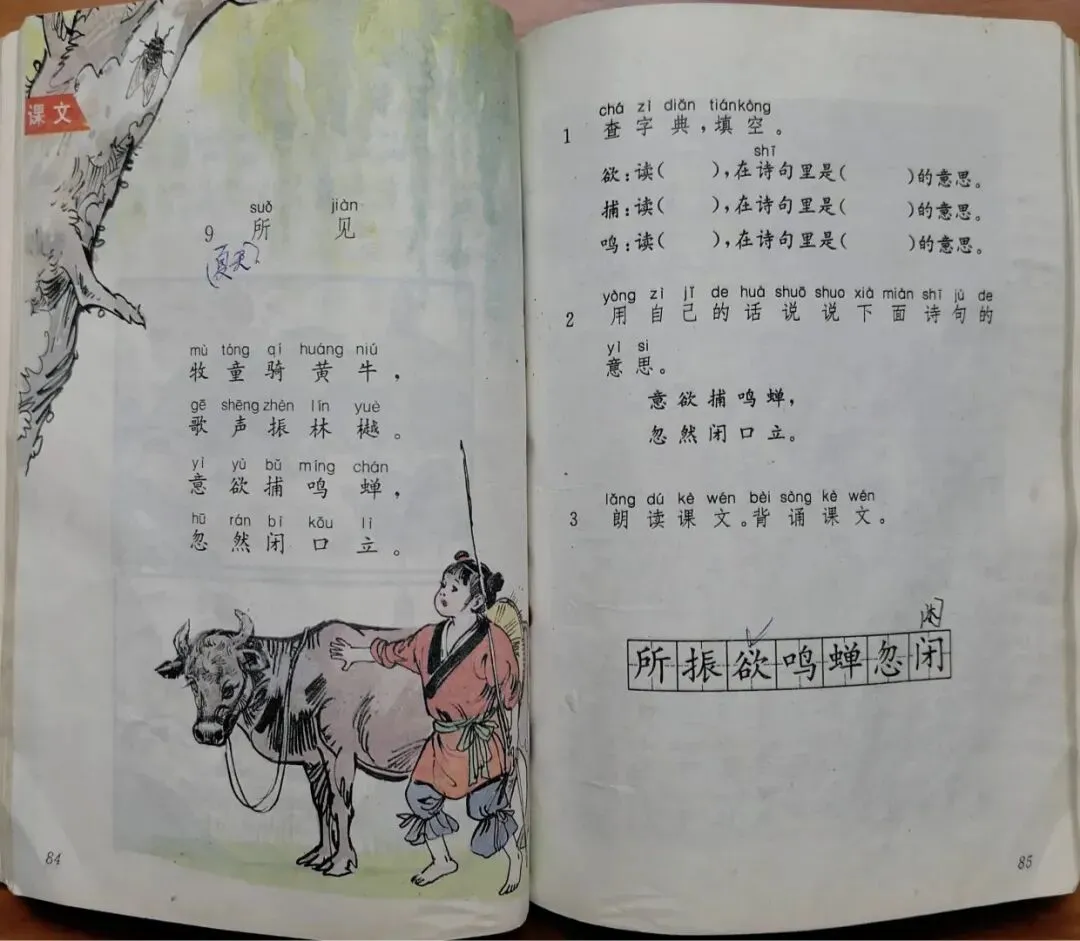 课文
suǒ jiàn
9 所 见
(夏天)
mù tóng qí huáng niú
牧 童 骑 黄 牛，
gē shēng zhèn lín yuè
歌 声 振 林 樾。
yì yù bǔ míng chán
意 欲 捕 鸣 蝉，
hū rán bì kǒu lì
忽 然 闭 口 立。
84
chá zì diǎn tiánkòng
1 查 字 典，填 空。
shī
欲：读( )，在诗句里是( )的意思。
捕：读( )，在诗句里是( )的意思。
鸣：读( )，在诗句里是( )的意思。
yòng zì jǐ de huà shuō shuo xià miàn shī jù de
2 用 自 己 的 话 说 说 下 面 诗 句 的
yì si
意 思。
意 欲 捕 鸣 蝉，
忽 然 闭 口 立。
lǎng dú kè wén bèi sòng kè wén
3 朗 读 课 文。背 诵 课 文。
所 振 欲 鸣 蝉 忽 闭
85